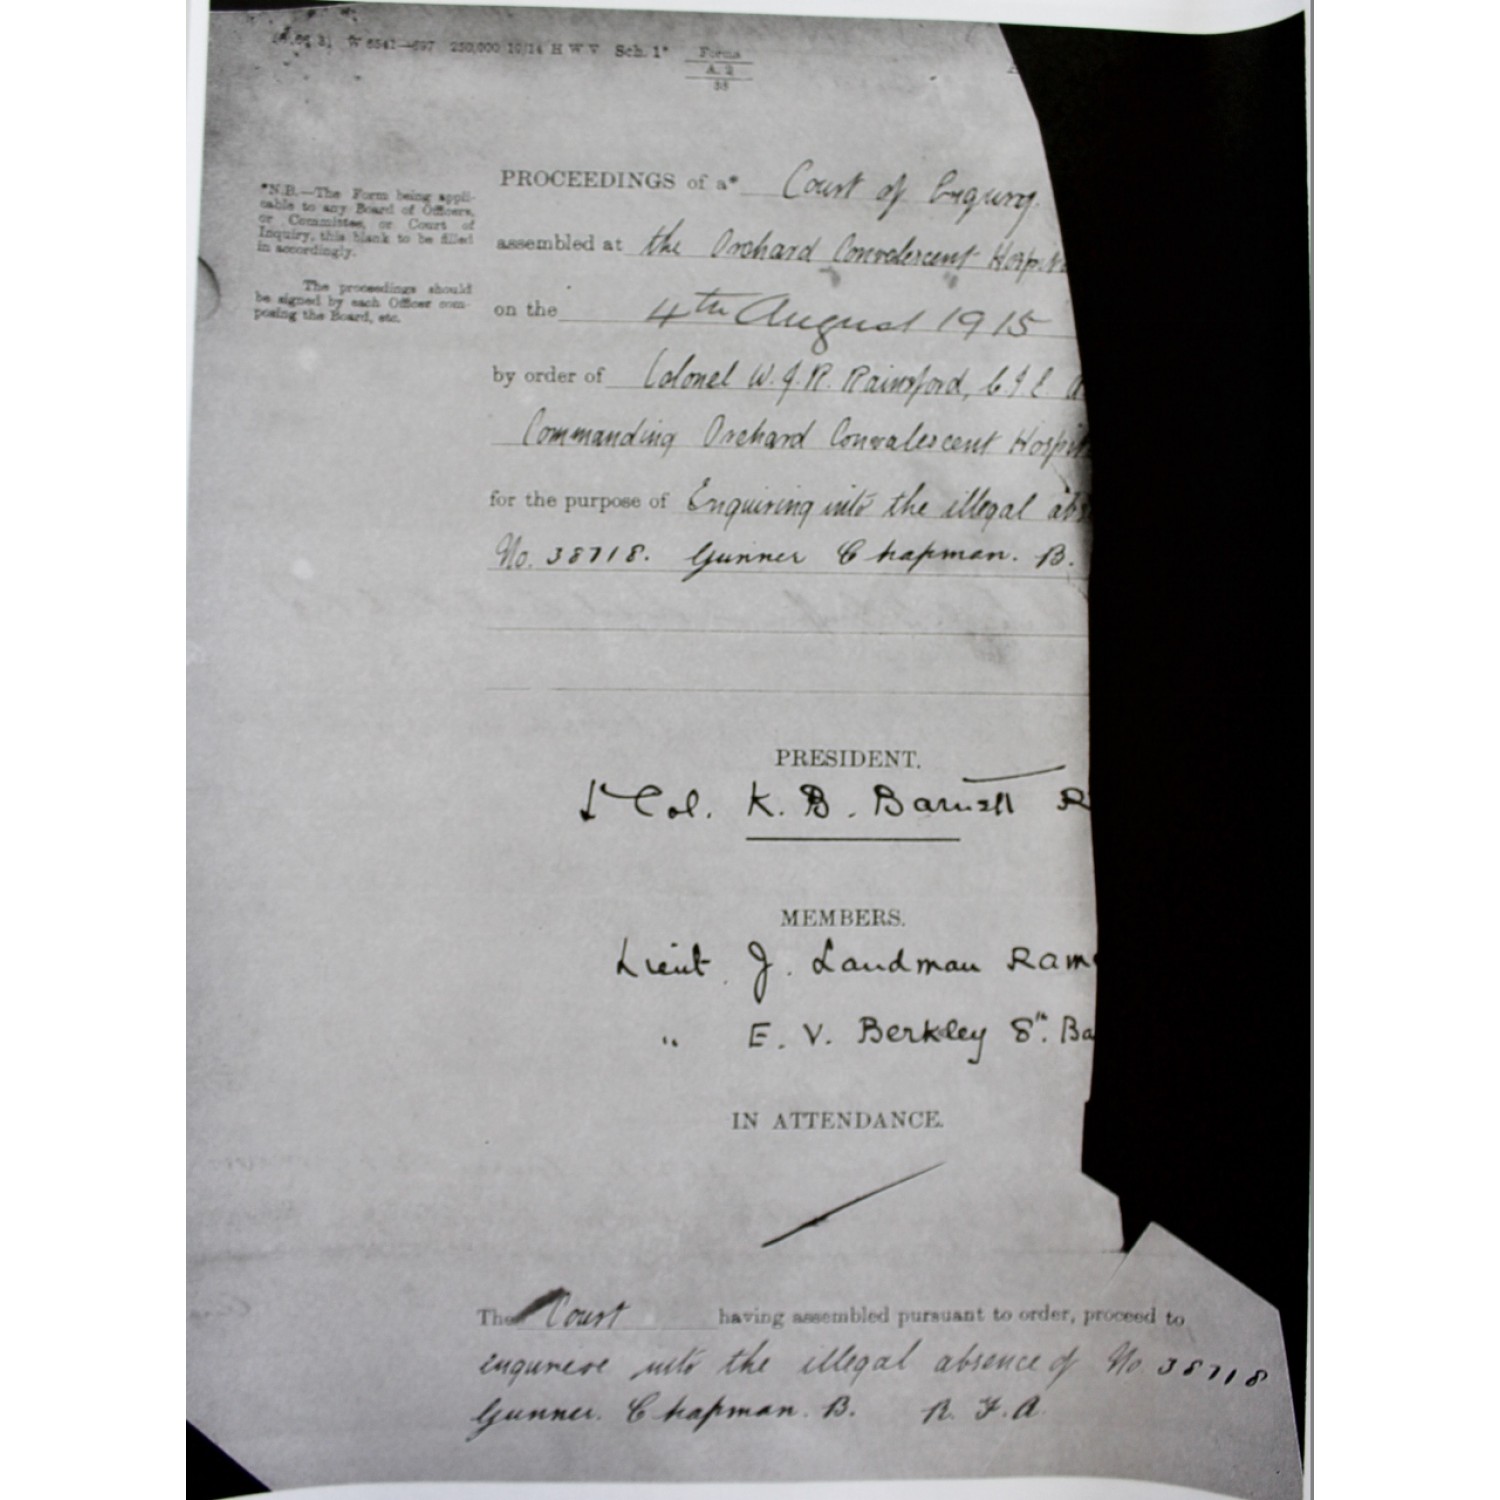 W 6541—697 250,000 10/14 H W V Sch. 1* Forms
A. 2
33
PROCEEDINGS of a* Court of Enquiry.
*N.B.—The Form being appli-
cable to any Board of Officers,
or Committee, or Court of
Inquiry, this blank to be filled
in accordingly.
The proceedings should
be signed by each Officer com-
posing the Board, etc.
assembled at the Orchard Convalescent Hospit
on the 4th August 1915
by order of Colonel W. J. R. Rainsford, C I E
Commanding Orchard Convalescent Hospit
for the purpose of Enquiring into the illegal abs
No. 38718. Gunner Chapman. B.
PRESIDENT.
Lt Col. K. B. Barnett R
MEMBERS.
Lieut. J. Landman RAM
" E. V. Berkley 8th. Ba
IN ATTENDANCE.
The Court having assembled pursuant to order, proceed to
enquirere into the illegal absence of No 38718
Gunner. Chapman. B. R. F. A.